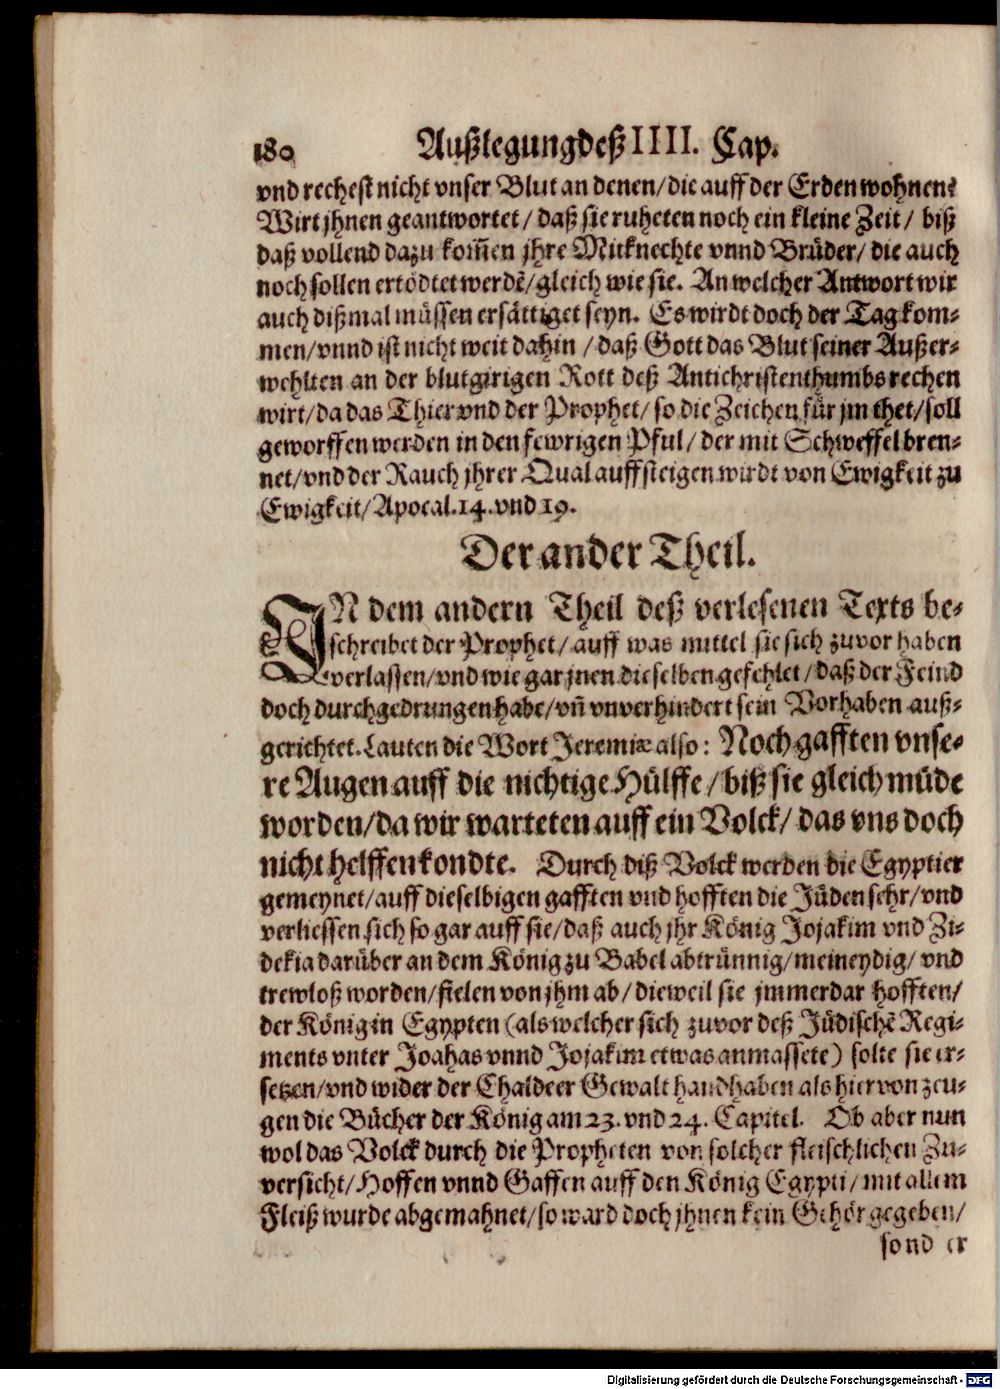 180 Außlegung deß IIII. Cap.
vnd rechest nicht vnser Blut an denen/ die auff der Erden wohnen?
Wirt jhnen geantwortet/ daß sie ruheten noch ein kleine Zeit/ biß
daß vollend dazu kom̃en jhre Mitknechte vnnd Brüder/ die auch
noch sollen ertödtet werdẽ/ gleich wie sie. An welcher Antwort wir
auch dißmal müssen ersättiget seyn. Es wirdt doch der Tag kom-
men/ vnnd ist nicht weit dahin / daß Gott das Blut seiner Außer-
wehlten an der blutgirigen Rott deß Antichristenthumbs rechen
wirt/ da das Thier vnd der Prophet/ so die Zeichen für jm thet/ soll
geworffen werden in den fewrigen Pful/ der mit Schweffel bren-
net/ vnd der Rauch jhrer Qual auffsteigen wirdt von Ewigkeit zu
Ewigkeit/ Apocal. 14. vnd 19.
Der ander Theil.
IN dem andern Theil deß verlesenen Texts be-
schreibet der Prophet/ auff was mittel sie sich zuvor haben
verlassen/ vnd wie gar jnen dieselben gefehlet/ daß der Feind
doch durchgedrungen habe/ vñ vnverhindert sein Vorhaben auß-
gerichtet. Lauten die Wort Jeremiæ also: Noch gafften vnse-
re Augen auff die nichtige Hülffe/ biß sie gleich müde
worden/ da wir warteten auff ein Volck/ das vns doch
nicht helffen kondte. Durch diß Volck werden die Egyptier
gemeynet/ auff dieselbigen gafften vnd hofften die Jüden sehr/ vnd
verliessen sich so gar auff sie/ daß auch jhr König Jojakim vnd Zi-
dekia darüber an dem König zu Babel abtrünnig/ meineydig/ vnd
trewloß worden/ fielen von jhm ab/ dieweil sie jmmerdar hofften/
der König in Egypten (als welcher sich zuvor deß Jüdischẽ Regi-
ments vnter Joahas vnnd Jojakim etwas anmassete) solte sie er-
setzen/ vnd wider der Chaldeer Gewalt handhaben als hiervon zeu-
gen die Bücher der König am 23. vnd 24. Capitel. Ob aber nun
wol das Volck durch die Propheten von solcher fleischlichen Zu-
versicht/ Hoffen vnnd Gaffen auff den König Egypti/ mit allem
Fleiß wurde abgemahnet/ so ward doch jhnen kein Gehör gegeben/
sonder
Digitalisierung gefördert durch die Deutsche Forschungsgemeinschaft - DFG